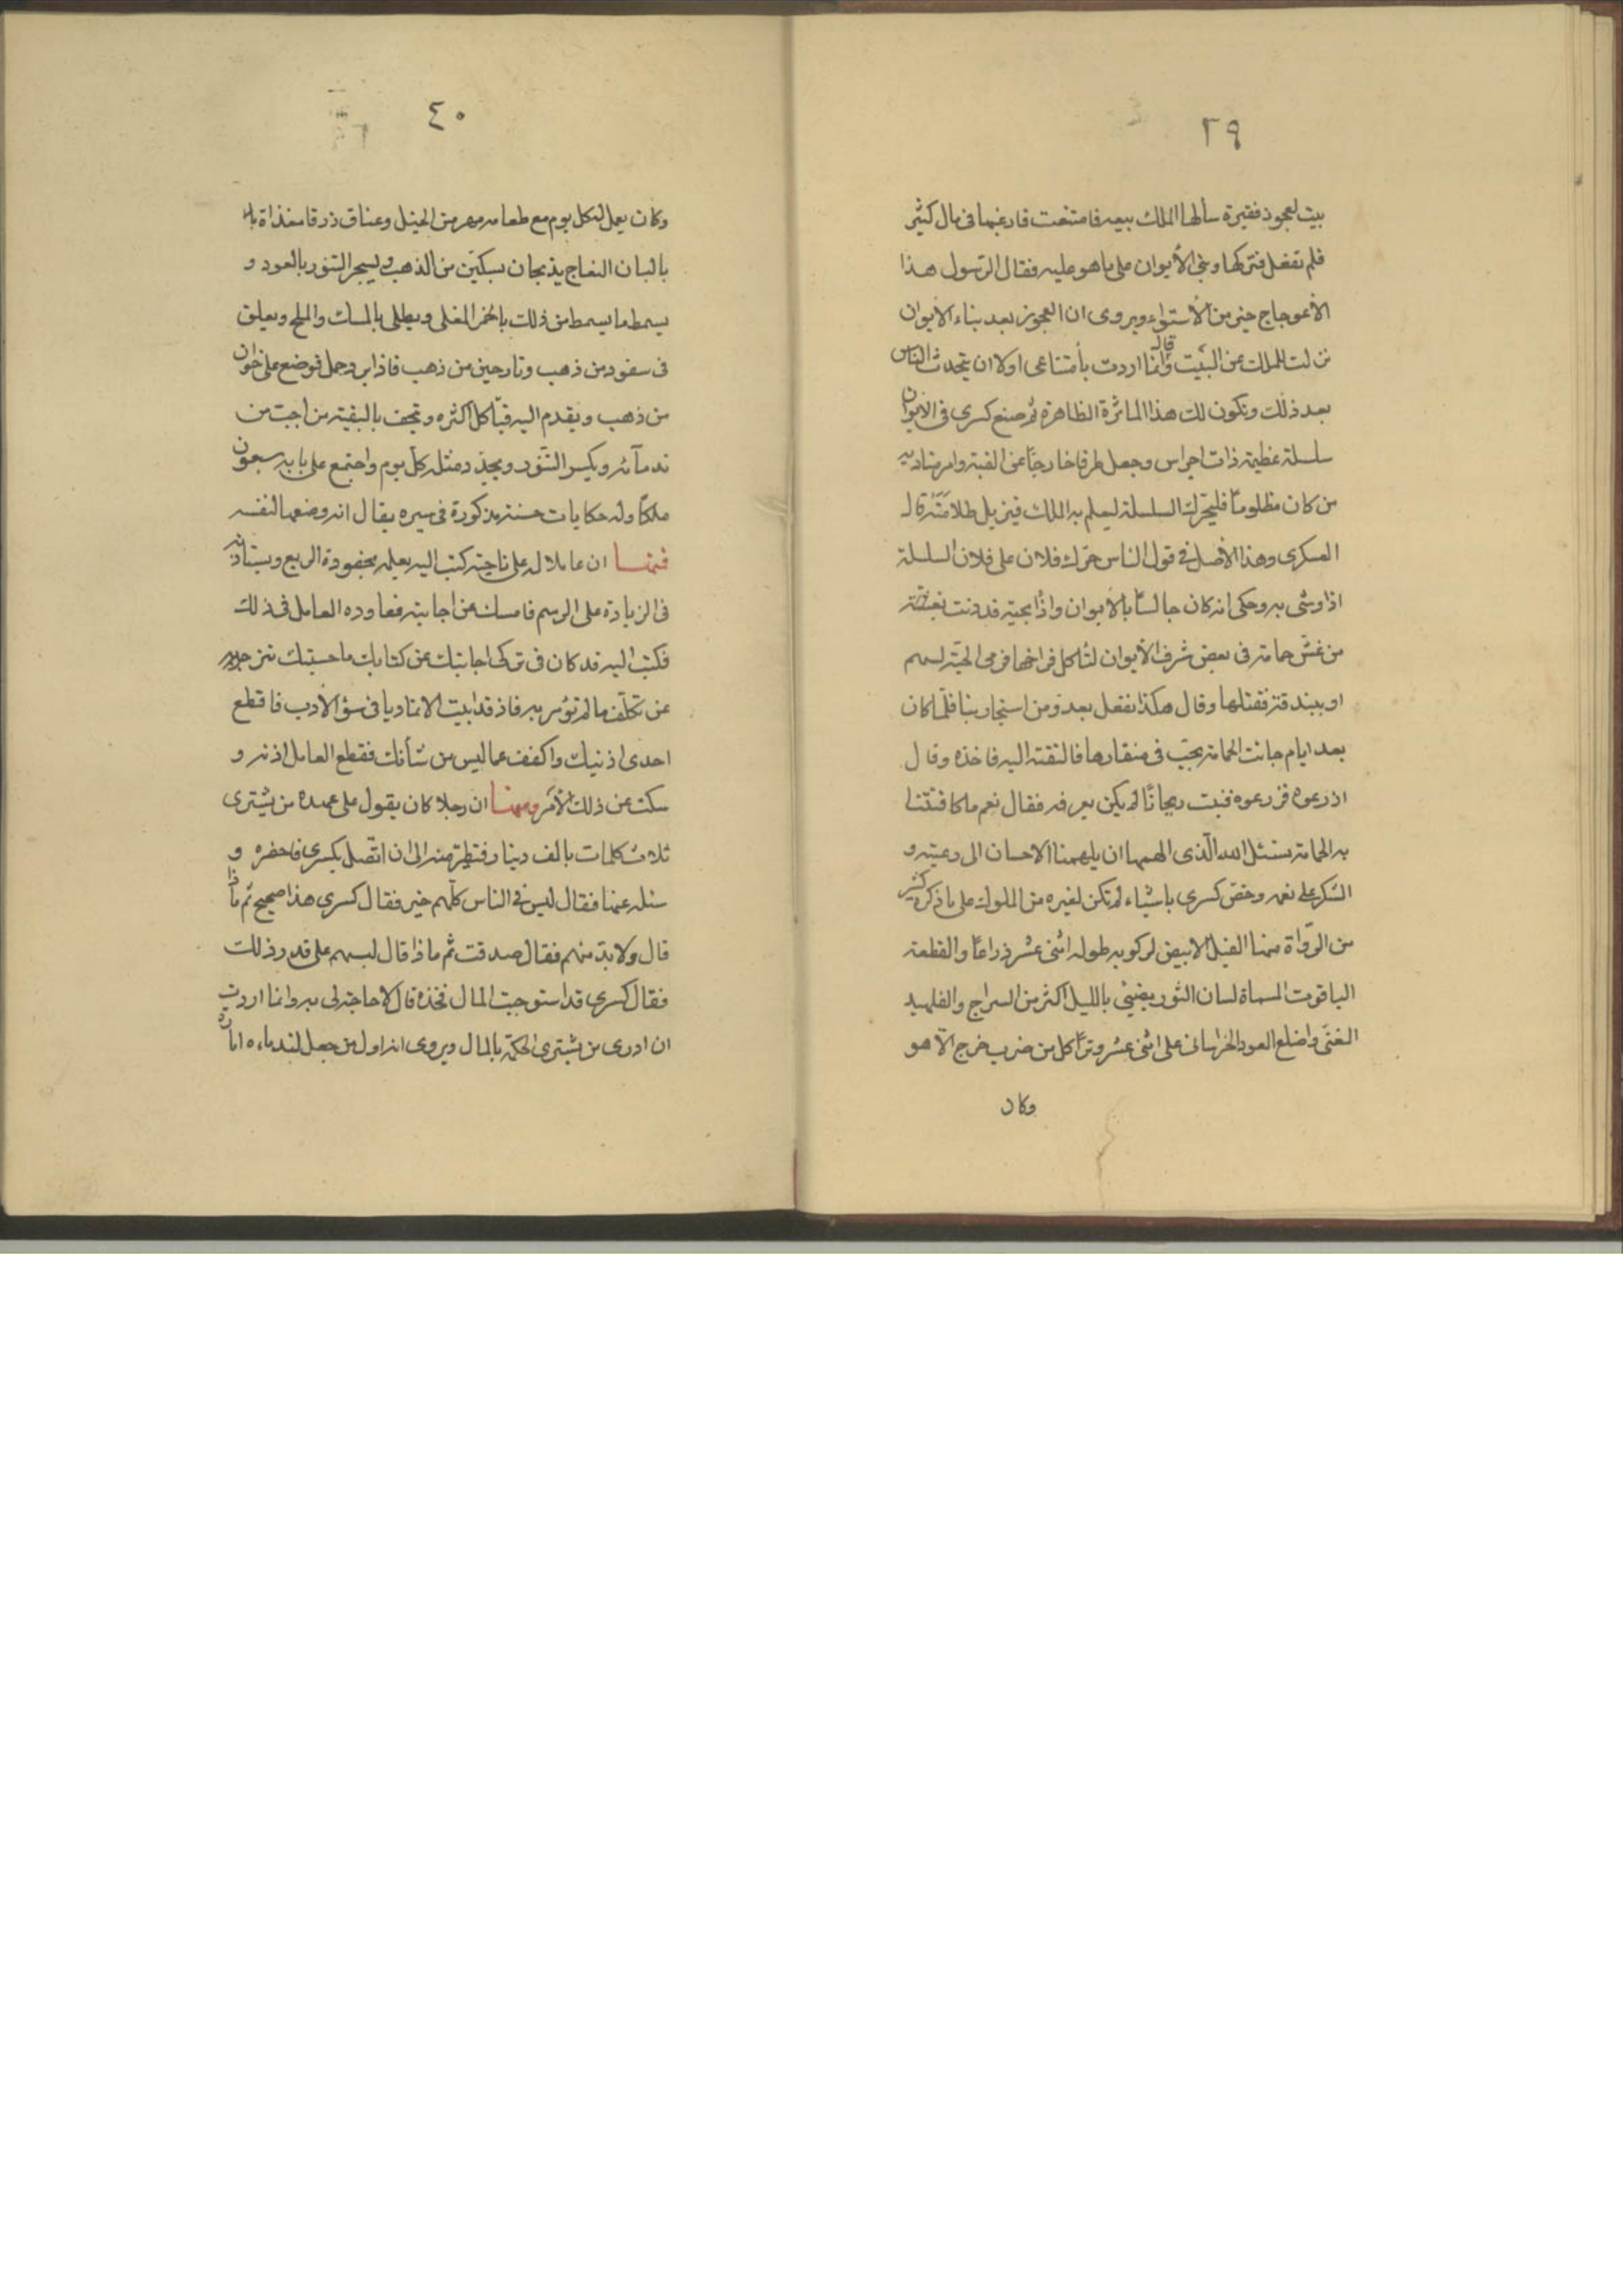 ٣٩
بيت لعجوز فقيرة سألها الملك بيعه فامتنعت فارغبها فى مال كثير
فلم تفعل فتركها وبنى الأيوان على ما هو عليه فقال الرسول هذا
الأعوجاج خير من الأستواء ويروى ان العجوز بعد بناء الايوان
نزلت للملك عن البيت وقالت انما اردت بأمتناعى اولا ان يتحدث الناس
بعد ذلك وتكون لك هذا الماثرة الظاهرة ثم صنع كسرى فى الايوان
سلسلة عظيمة ذات اجراس وجعل طرفا خارجا عن القبة وامر مناديه
من كان مظلوما فليحرك السلسلة ليعلم به الملك فيزيل ظلامته قال
العسكرى وهذا الأصل فى قول الناس حرك فلان على فلان السلسلة
اذا وشى به وحكى انه كان جالسا بالأيوان واذا بحية قد دنت
من عش حمامة فى بعض شرف الأيوان لتأكل فراخها فرمى الحية بسهم
او ببندقة فقتلها وقال هكذا نفعل بعدو من استجار بنا فلما كان
بعد ايام جائت الحمامة بحب فى منقارها فالقته اليه فاخذه وقال
ازرعوه فزرعوه فنبت ريحانا لم يكن يعرفه فقال نعم ما كافئتنا
به الحمامة نسئل الله الذى الهمها ان يلهمنا الاحسان الى رعيته و
الشكر على نعمه وخص كسرى باشياء لم تكن لغيره من الملوك على ما ذكره كثير
من الرواة منها الفيل الابيض لركوبه طوله اثنى عشر ذراعا والقطعة
الياقوت المسماة لسان الثور يضيئى بالليل اكثر من السراج والفلهبد
المغنى واضلع العود الخراسانى على اثنى عشر وترا كل من ضرب خرج الا هو
وكان
٤٠
وكان يعمل له كل يوم مع طعامه مهر من الخيل وعناق زرقا مغذاة با
بالبان النعاج يذبحان بسكين من الذهب ويسجر التنور بالعود و
يسمط ما يسمط من ذلك بالخمر المغلى ويطلى بالمسك والملح ويعلق
فى سفود من ذهب ونارجين من ذهب فاذا برد حمل فوضع على خوان
من ذهب ويقدم اليه فيأكل اكثره ويتحف بالبقية من احبّ من
ندمآئه ويكسر التنور ويجدد مثله كل يوم واجتمع على بابه سبعون
ملكا وله حكايات حسنة مذكورة فى سيره يقال انه وضعها لنفسه
فمنها ان عاملا له على ناحية كتب اليه يعلمه بجودة الريع ويستأذنه
فى الزيادة على الرسم فامسك عن اجابته فعاوده العامل فى ذلك
فكتب اليه قد كان فى تركى اجابتك عن كتابك ما حسبتك تنزجر به
عن تكلف ما لم تؤمر به فاذ قد ابيت الا تماديا فى سؤ الأدب فاقطع
احدى اذنيك واكفف عما ليس من شأنك فقطع العامل اذنه و
سكت عن ذلك الأمر ومنها ان رجلا كان يقول على عهده من يشترى
ثلاث كلمات بالف دينار الى ان اتصل بكسرى فاحضره و
سئله عنها فقال ليس فى الناس كلهم خير فقال كسرى هذا صحيح ثم ماذا
قال ولا بد منهم فقال صدقت ثم ماذا قال لبسهم على قدر ذلك
فقال كسرى قد استوجبت المال فخذه قال لا حاجة لى به وانما اردت
ان ادرى من يشترى الحكمة بالمال ويروى انه اول من جعل لندماءه امارة